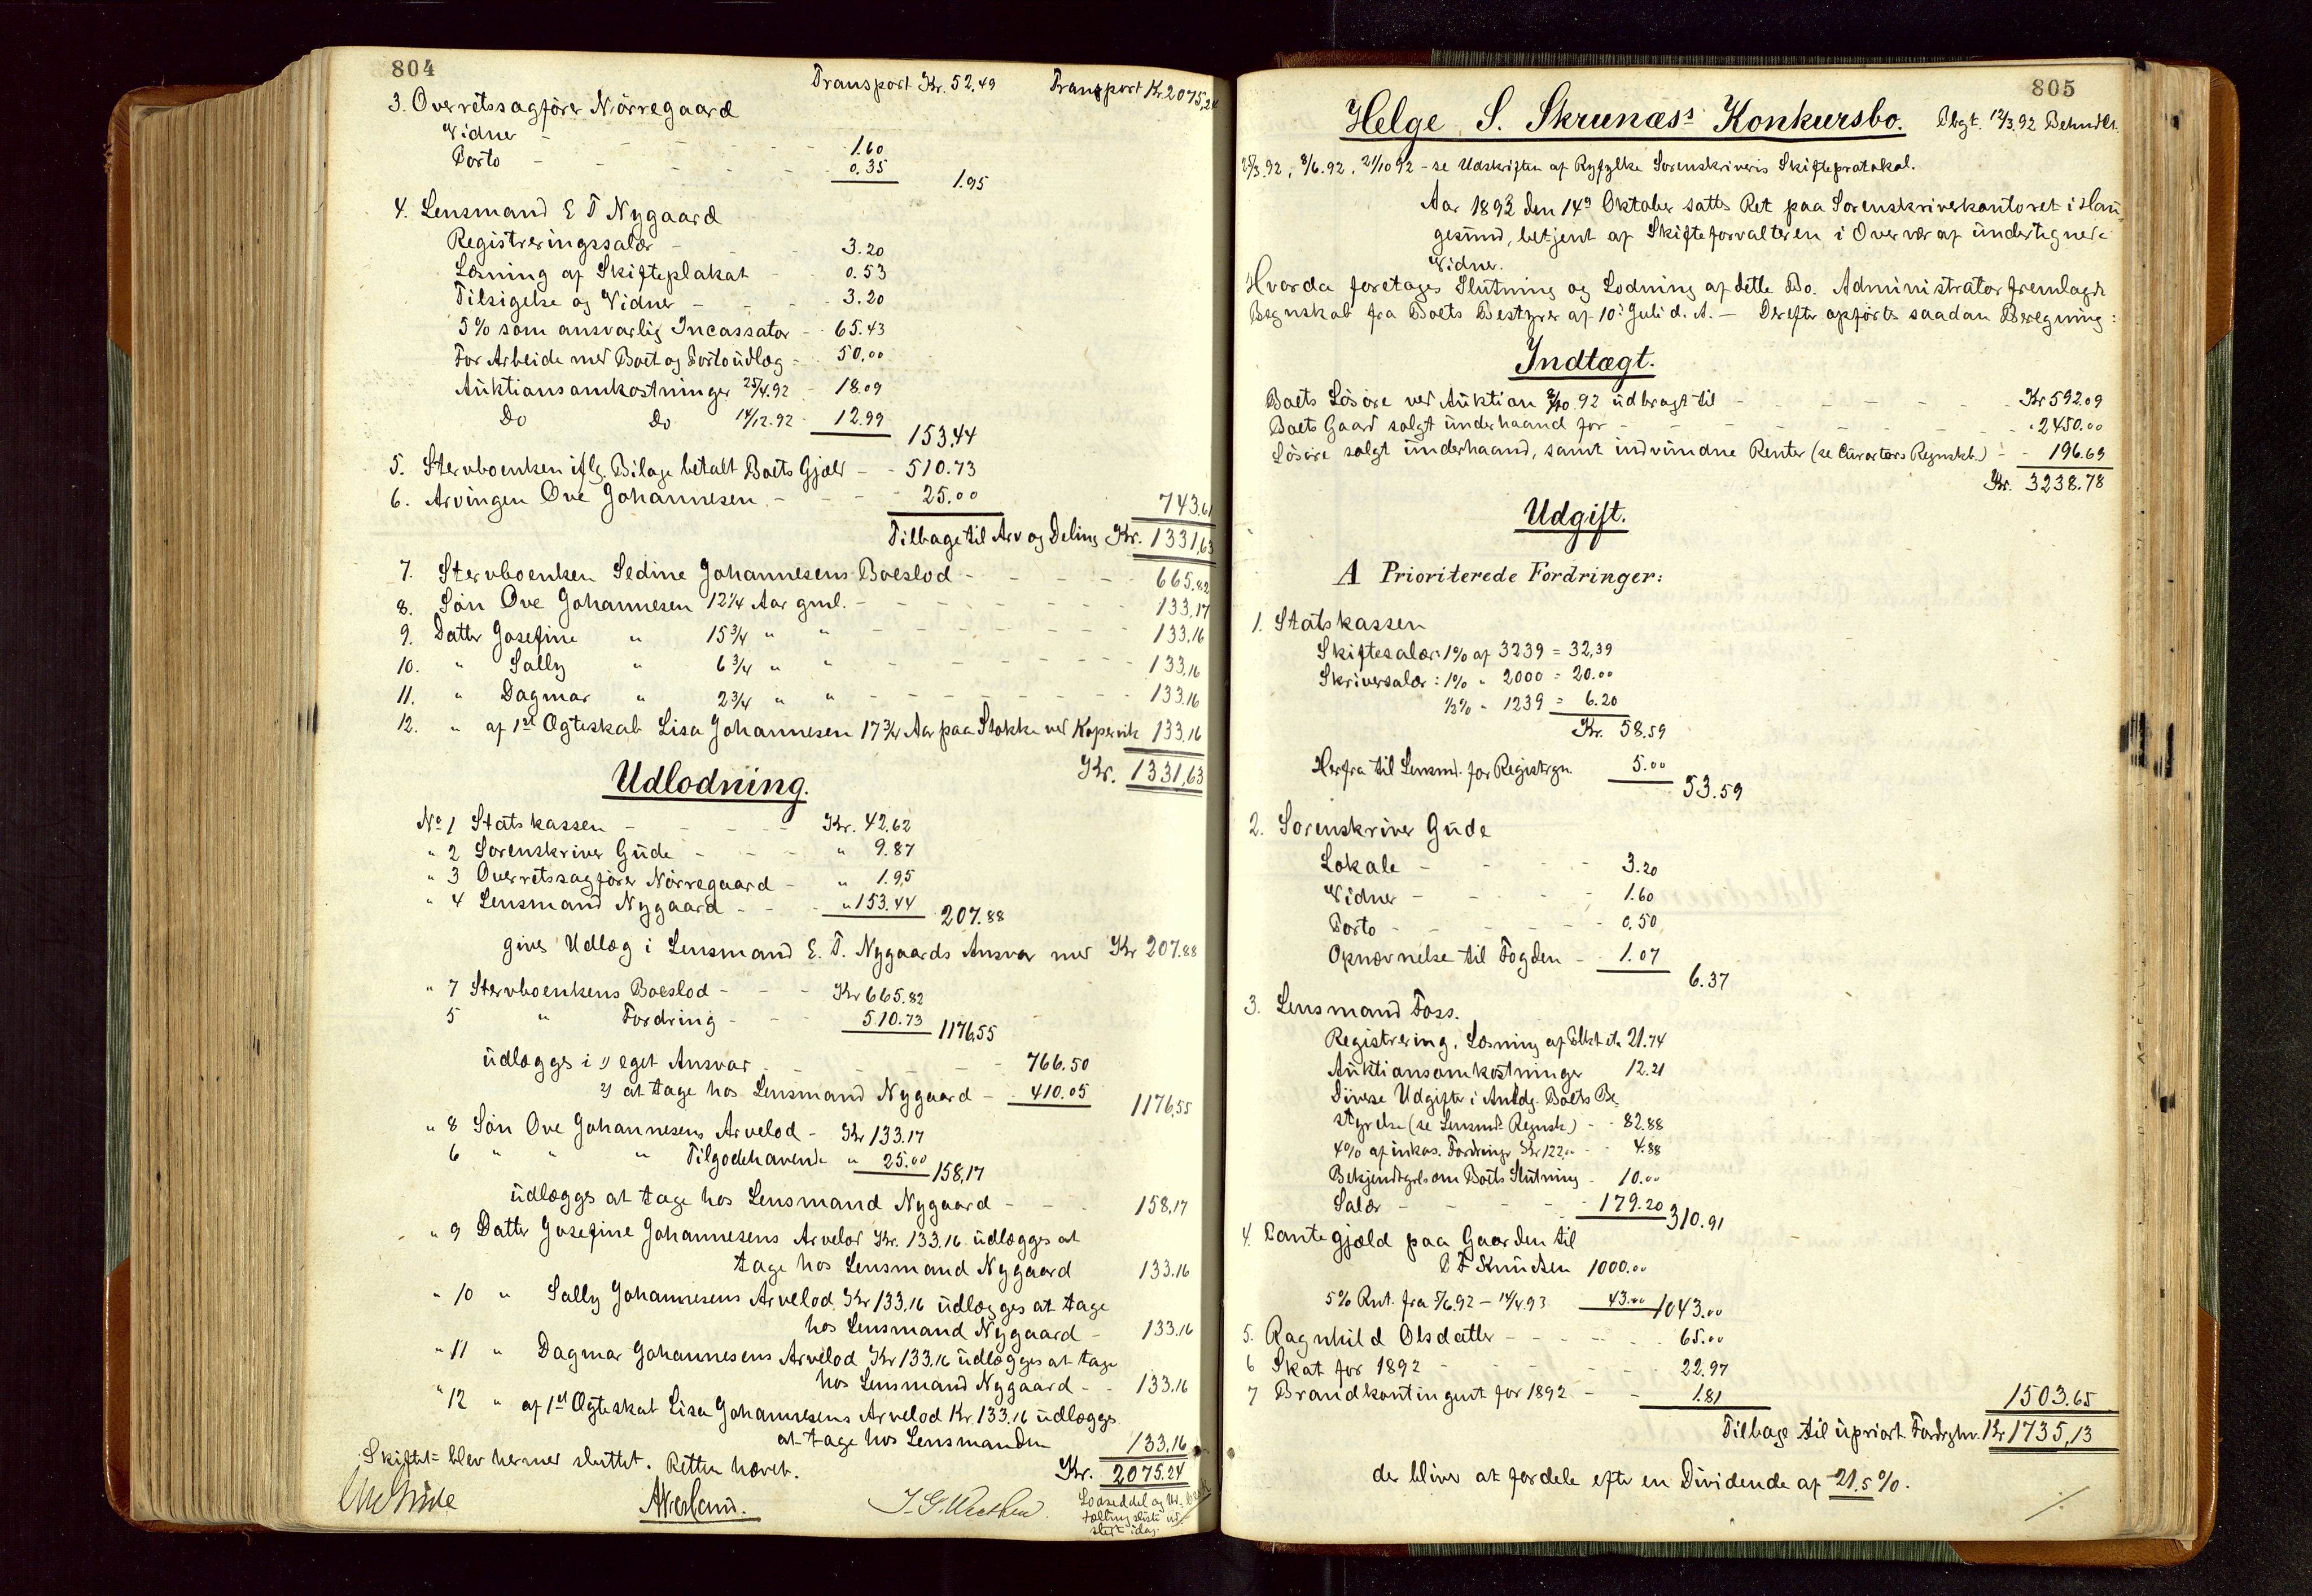 804
Transport Kr. 52.49 Transport Kr 2075,24
3. Overretssagfører Nørregaard
Vidner - - - - - 1.60
Porto - - - - - 0.35
1.95
4. Lensmand E T Nygaard
Registreringssalær - 3.20
Læsning af Skifteplakat - 0.53
Tilsigelse og Vidner - - - 3.20
5% som ansvarlig Incassator - 65.43
For Arbeide med Boet og Portoudlæg - 50.00
Auktionsomkostninger 25/4.92 - 18.09
Do Do 14/12.92 - 12.99
153.44
5. Stervboenken iflg. Bilage betalt Boets Gjæld - - 510.73
6. Arvingen Ove Johannesen - - - - 25.00 743.61
Tilbage til Arv og Deling Kr. 1331,63
7. Stervboenken Sedine Johannesens Boeslod - - - - - 665.82
8. Søn Ove Johannesen 12 1/4 Aar gml. - - - - - - 133,17
9. Datter Josefine " 15 3/4 " " - - - - - - 133.16
10. " Sally " 6 3/4 " " - - - - - - 133,16
11. " Dagmar " 2 3/4 " " - - - - - - 133.16
12. " af 1st Ægteskab Lisa Johannesen 17 3/4 Aar paa Stokke ved Kopervik 133.16
Kr. 1331,63
Udlodning.
No 1 Statskassen - - - - Kr. 42.62
" 2 Sorenskriver Gude - - - " 9.87
" 3 Overretssagfører Nørregaard - " 1.95
" 4 Lensmand Nygaard - - " 153.44 207.88
gives Udlæg i Lensmand E. T. Nygaards Ansvar med Kr 207.88
" 7 Stervboenkens Boeslod - - - Kr 665.82
5 " Fordring - - - 510.73 1176,55
udlægges i 1) eget Ansvar - - - - 766.50
2) at tage hos Lensmand Nygaard - 410.05
1176,55
" 8 Søn Ove Johannesens Arvelod - Kr 133.17
6 " " " Tilgodehavende " 25.00 158,17
udlægges at tage hos Lensmand Nygaard - - - 158,17
" 9 Datter Josefine Johannesens Arvelod Kr. 133.16 udlægges at
tage hos Lensmand Nygaard 133.16
" 10 " Sally Johannesens Arvelod Kr 133,16 udlægges at tage
hos Lensmand Nygaard - 133.16
" 11 " Dagmar Johannesens Arvelod Kr 133,16 udlægges at tage
hos Lensmand Nygaard - - 133.16
" 12 " af 1st Ægteskab Lisa Johannesens Arvelod Kr. 133.16 udlægges
at tage hos Lensmanden 133.16
Skiftet blev hermed sluttet. Retten hævet.
Kr. 2075.24
805
Helge S. Skrunæss Konkursbo. Bbgt. 12/3.92 Behndlt.
25/3.92, 8/6.92, 21/10 92 - se Udskriften af Ryfylke Sorenskriveris Skifteprotokol.
Aar 1892 den 14de Oktober sattes Ret paa Sorenskriverkontoret i Hau-
gesund, betjent af Skifteforvalteren i Overvær af undertegnede
Vidner.
Hvorda foretages Slutning og Lodning af dette Bo. Administrator fremlagde
Regnskab fra Boets Bestyrer af 10de Juli d. A. - Derefter opførtes saadan Beregning:
Indtægt.
Boets Løsøre ved Auktion 3/10.92 udbragt til - - - - - - - Kr 592.09
Boets Gaard solgt underhaand for - - - - - - - - " 2450.00
Løsøre solgt underhaand, samt indvundne Renter (se Curators Regnskb.) - - 196.69
Kr. 3238.78
Udgift.
A Prioriterede Fordringer:
1. Statskassen
Skiftesalær: 1% af 3239 = 32,39
Skriversalær: 1% " 2000 = 20.00
1/2% " 1239 = 6.20
Kr. 58.59
Herfra til Lensmd. for Registrgn. 5.00
53.59
2. Sorenskriver Gude
Lokale - - - - - 3.20
Vidner - - - - - 1.60
Porto - - - - - - 0.50
Opnævnelse til Fogden - - 1.07
6.37
3. Lensmand Foss.
Registrering, Læsning af Plkt etc 21.74
Auktionsomkostninger 12.21
Diverse Udgifter i Anldg. Boets Be-
styrelse (se Lensmds Regnsk) - - 82.88
4% af inkas. Fordringr Kr 122.00 - 4.88
Bekjendtgrls om Boets Slutning - 10.00
Salær - - - - - - 179.20 310.91
4. Pantegjæld paa Gaarden til
P F Knudsen 1000.00
5% Rnt. fra 5/6.92 - 14/4.93 43.00 1043.00
5. Ragnhild Olsdatter - - - - - 65.00
6 Skat for 1892 - - - - - - 22.97
7 Brandkontingent for 1892 - - 1.81 1503.65
Tilbage til upriort. Fordrgnr. Kr 1735,13
der bliver at fordele efter en Dividende af 21.5%.